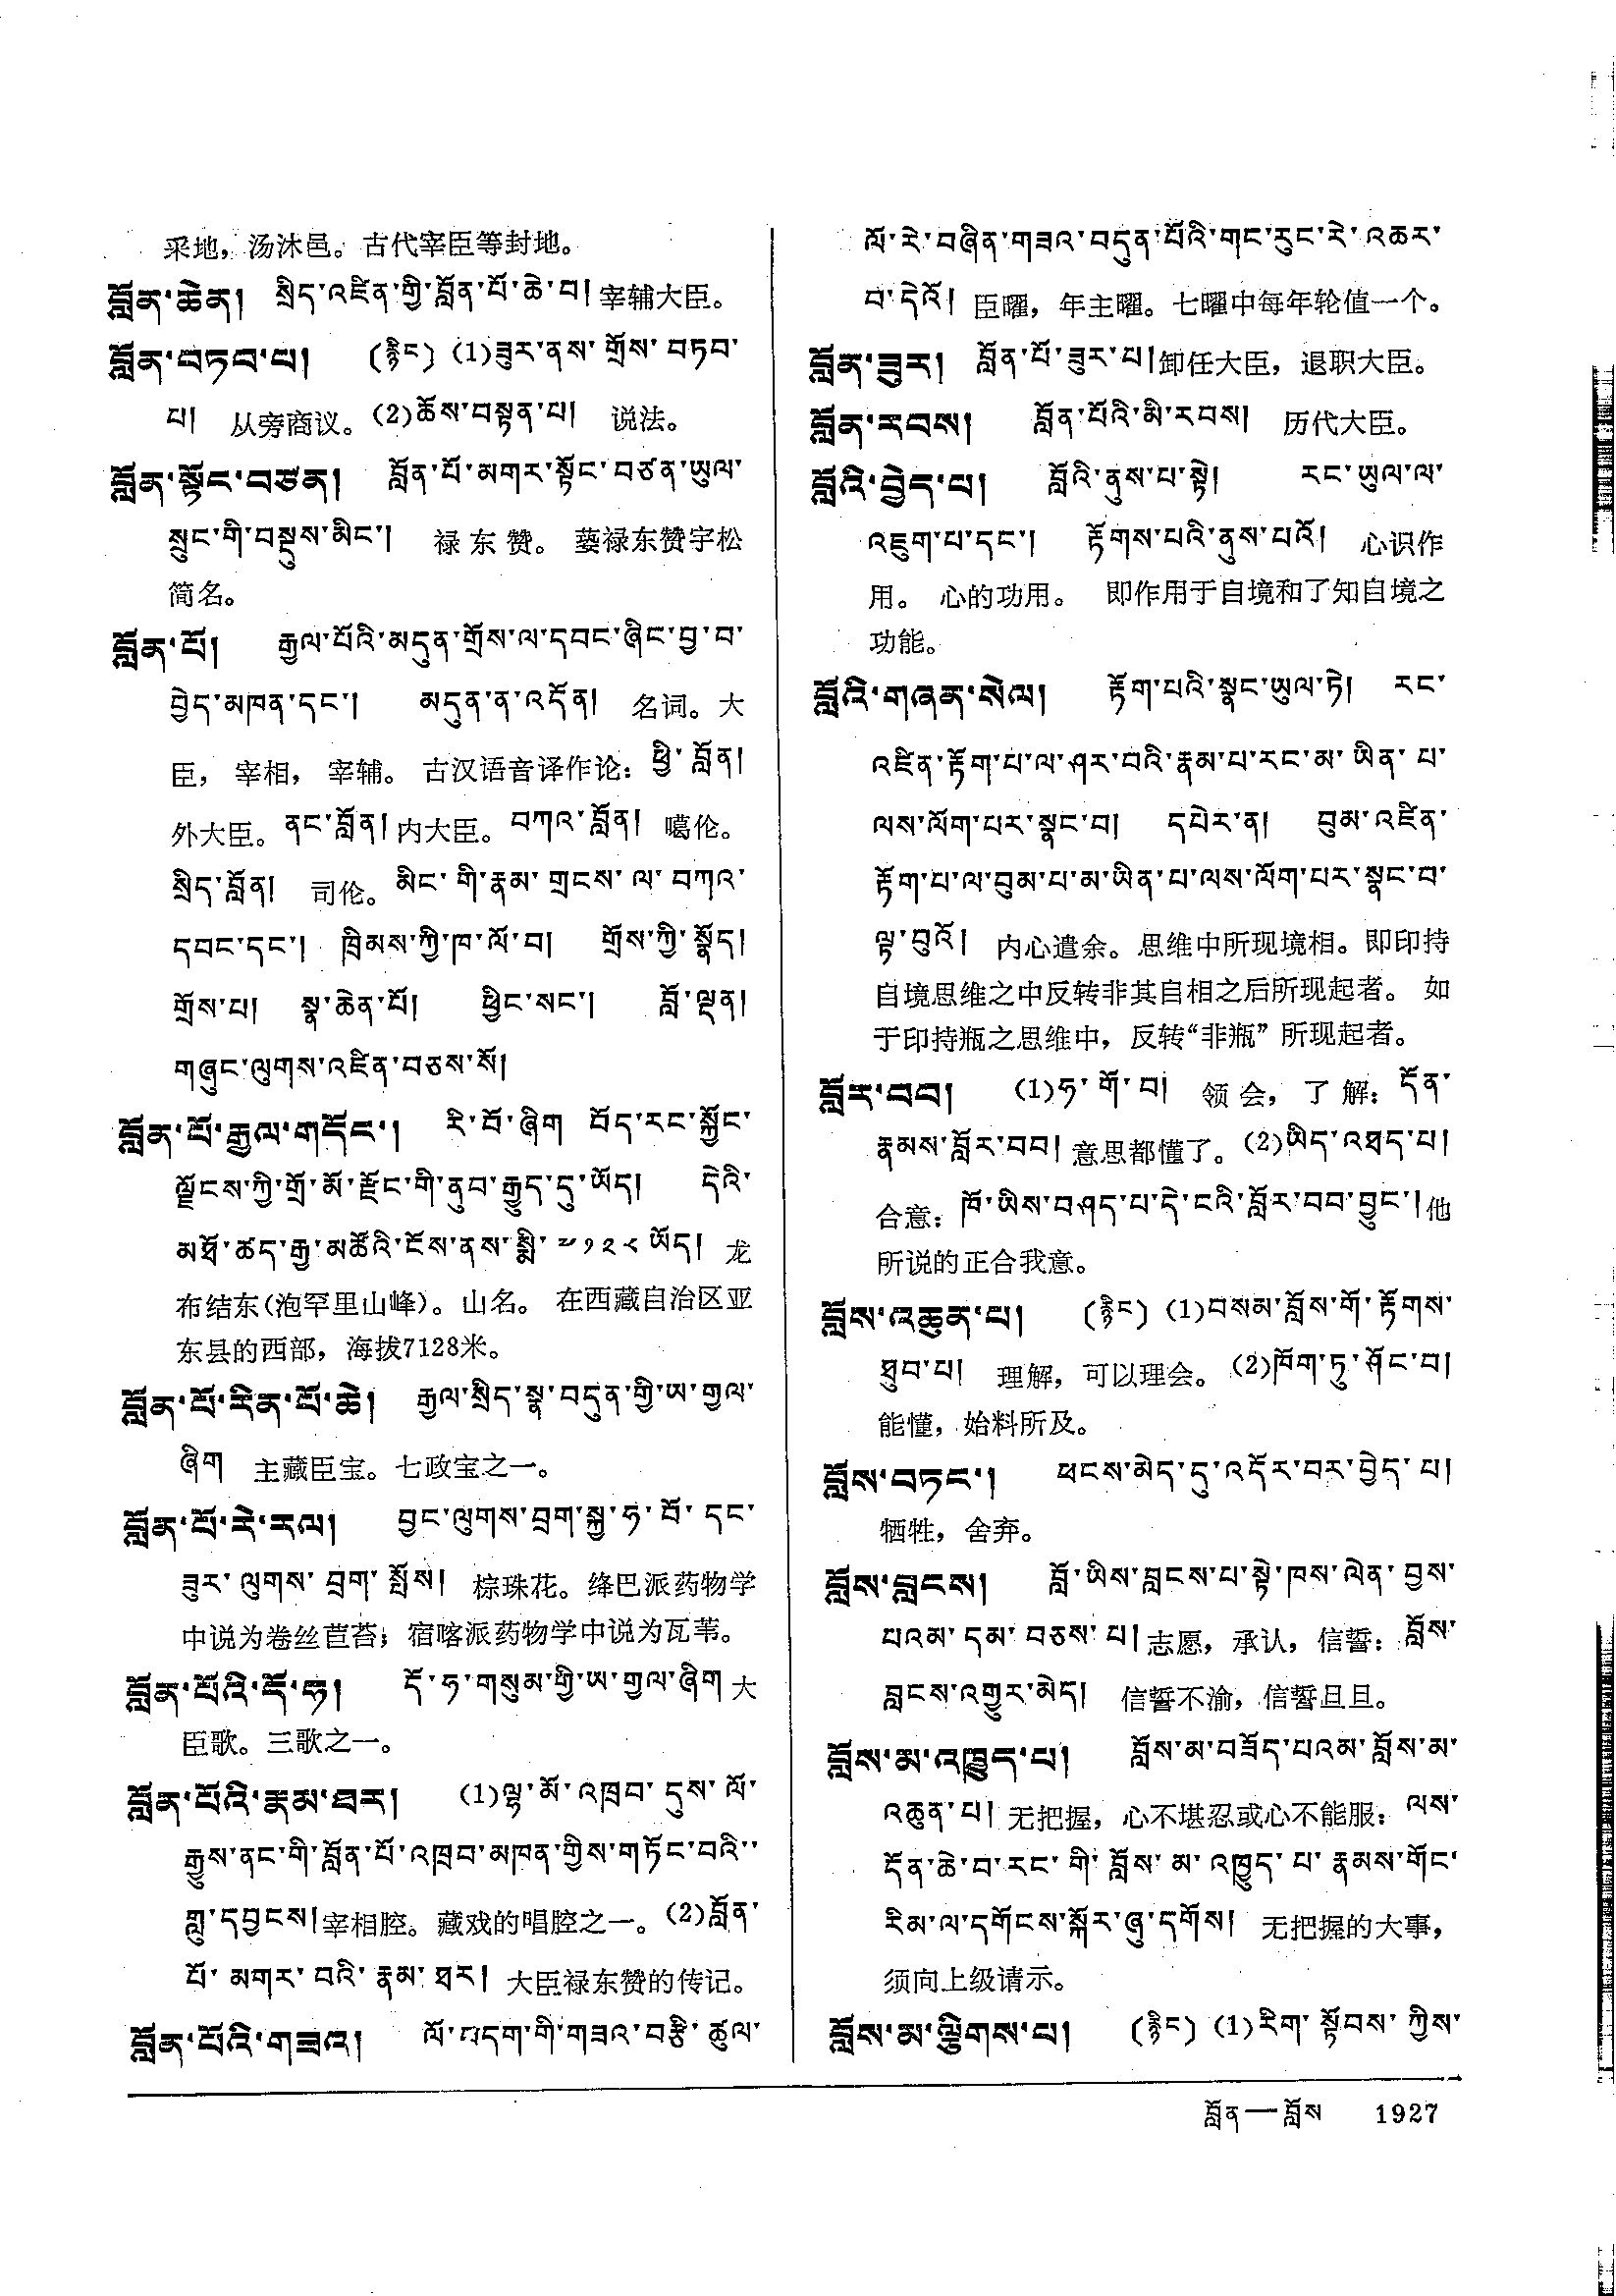 采地，汤沐邑。古代宰臣等封地。
བློན་ཆེན། སྲིད་འཛིན་གྱི་བློན་པོ་ཆེ་བ། 宰辅大臣。
བློན་བཏབ་པ། (རྙིང) (1)ཟུར་ནས་གྲོས་བཏབ་
པ། 从旁商议。(2)ཆོས་བསྟན་པ། 说法。
བློན་སྟོང་བཙན། བློན་པོ་མགར་སྟོང་བཙན་ཡུལ་
སྲུང་གི་བསྡུས་མིང་། 禄东赞。 薆禄东赞宇松
简名。
བློན་པོ། རྒྱལ་པོའི་མདུན་གྲོས་ལ་དབང་ཞིང་བྱ་བ་
བྱེད་མཁན་དང་། མདུན་ན་འདོན། 名词。大
臣， 宰相， 宰辅。 古汉语音译作论：ཕྱི་བློན།
外大臣。ནང་བློན།内大臣。བཀའ་བློན། 噶伦。
སྲིད་བློན། 司伦。མིང་གི་རྣམ་གྲངས་ལ་བཀའ་
དབང་དང་། ཁྲིམས་ཀྱི་ཁ་ལོ་བ། གྲོས་ཀྱི་སྣོད།
གྲོས་པ། སྣ་ཆེན་པོ། ཕྱིང་སང་། བློ་ལྡན།
གཞུང་ལུགས་འཛིན་བཅས་སོ།
བློན་པོ་རྒྱལ་གདོང་། རི་བོ་ཞིག བོད་རང་སྐྱོང་
ལྗོངས་ཀྱི་གྲོ་མོ་རྫོང་གི་ནུབ་རྒྱུད་དུ་ཡོད། དེའི་
མཐོ་ཚད་རྒྱ་མཚོའི་ངོས་ནས་སྨི་༧༡༢༨ ཡོད། 龙
布结东(泡罕里山峰)。山名。 在西藏自治区亚
东县的西部，海拔7128米。
བློན་པོ་རིན་པོ་ཆེ། རྒྱལ་སྲིད་སྣ་བདུན་གྱི་ཨ་གྱལ་
ཞིག 主藏臣宝。七政宝之一。
བློན་པོ་རེ་རལ། བྱང་ལུགས་བྲག་སྐྱ་ཧ་བོ་དང་
ཟུར་ལུགས་བྲག་སྤོས། 棕珠花。绛巴派药物学
中说为卷丝苣苔；宿喀派药物学中说为瓦苇。
བློན་པོའི་དོ་ཧ། དོ་ཧ་གསུམ་གྱི་ཨ་གྱལ་ཞིག 大
臣歌。三歌之一。
བློན་པོའི་རྣམ་ཐར། (1)ལྷ་མོ་འཁྲབ་དུས་ལོ་
རྒྱུས་ནང་གི་བློན་པོ་འཁྲབ་མཁན་གྱིས་གཏོང་བའི་
གླུ་དབྱངས།宰相腔。藏戏的唱腔之一。(2)བློན་
པོ་མགར་བའི་རྣམ་ཐར། 大臣禄东赞的传记。
བློན་པོའི་གཟའ། ལོ་བདག་གི་གཟའ་བརྩི་ཚུལ་
ལོ་རེ་བཞིན་གཟའ་བདུན་པོའི་གང་རུང་རེ་འཆར་
བ་དེའོ། 臣曜，年主曜。七曜中每年轮值一个。
བློན་ཟུར། བློན་པོ་ཟུར་པ།卸任大臣，退职大臣。
བློན་རབས། བློན་པོའི་མི་རབས། 历代大臣。
བློའི་བྱེད་པ། བློའི་ནུས་པ་སྟེ། རང་ཡུལ་ལ་
འཇུག་པ་དང་། རྟོགས་པའི་ནུས་པའོ། 心识作
用。 心的功用。 即作用于自境和了知自境之
功能。
བློའི་གཞན་སེལ། རྟོག་པའི་སྣང་ཡུལ་ཏེ། རང་
འཛིན་རྟོག་པ་ལ་ཤར་བའི་རྣམ་པ་རང་མ་ཡིན་པ་
ལས་ལོག་པར་སྣང་བ། དཔེར་ན། བུམ་འཛིན་
རྟོག་པ་ལ་བུམ་པ་མ་ཡིན་པ་ལས་ལོག་པར་སྣང་བ་
ལྟ་བུའོ། 内心遣余。思维中所现境相。即印持
自境思维之中反转非其自相之后所现起者。 如
于印持瓶之思维中，反转“非瓶”所现起者。
བློར་བབ། (1)ཧ་གོ་བ། 领会，了解：དོན་
རྣམས་བློར་བབ།意思都懂了。(2)ཡིད་འཐད་པ།
合意：ཁོ་ཡིས་བཤད་པ་དེ་ངའི་བློར་བབ་བྱུང་།他
所说的正合我意。
བློས་འཆུན་པ། (རྙིང) (1)བསམ་བློས་གོ་རྟོགས་
ཐུབ་པ། 理解，可以理会。(2)ཁོག་ཏུ་ཤོང་བ།
能懂，始料所及。
བློས་བཏང་། ཕངས་མེད་དུ་འདོར་བར་བྱེད་པ།
牺牲，舍弃。
བློས་བླངས། བློ་ཡིས་བླངས་པ་སྟེ་ཁས་ལེན་བྱས་
པའམ་དམ་བཅས་པ།志愿，承认，信誓：བློས་
བླངས་འགྱུར་མེད། 信誓不渝，信誓旦旦。
བློས་མ་འཁྱུད་པ། བློས་མ་བཟོད་པའམ་བློས་མ་
འཆུན་པ།无把握，心不堪忍或心不能服：ལས་
དོན་ཆེ་བ་རང་གི་བློས་མ་འཁྱུད་པ་རྣམས་གོང་
རིམ་ལ་དགོངས་སྐོར་ཞུ་དགོས། 无把握的大事，
须向上级请示。
བློས་མ་ལྕིགས་པ། (རྙིང) (1)རིག་སྟོབས་ཀྱིས་
བློན—བློས 1927